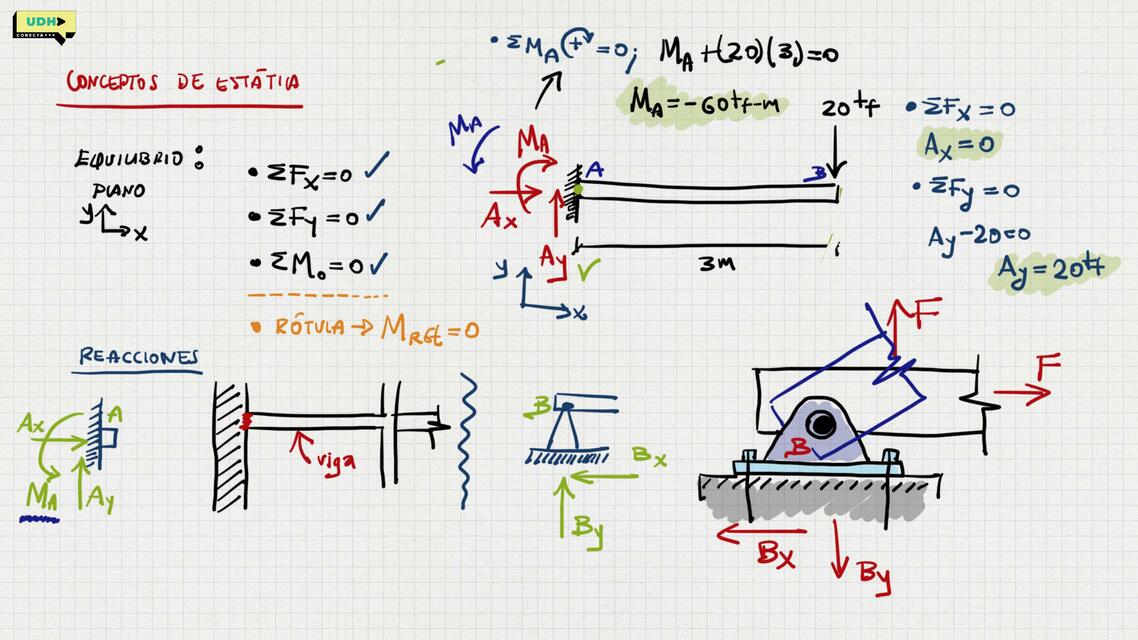 UDH
CONECTA
CONCEPTOS DE ESTÁTICA
EQUILIBRIO:
PLANO
y
x
• ΣFx=0 ✓
• ΣFy=0 ✓
• ΣMo=0 ✓
• RÓTULA → MRET=0
• ΣMA (+) =0; MA+(20)(3)=0
MA=-60tf-m
20tf
MA
MA
A
B
Ax
Ay
3m
y
x
• ΣFx=0
Ax=0
• ΣFy=0
Ay-20=0
Ay=20tf
REACCIONES
Ax
A
MA
Ay
viga
B
Bx
By
F
F
B
Bx
By